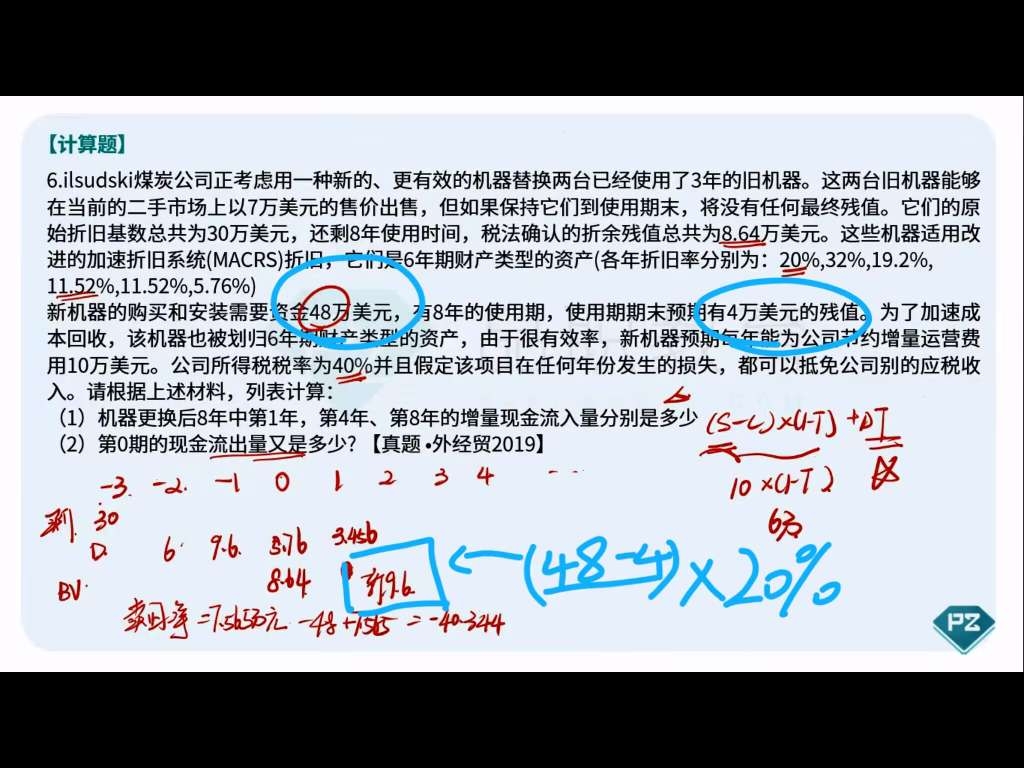 【计算题】
6.ilsudski煤炭公司正考虑用一种新的、更有效的机器替换两台已经使用了3年的旧机器。这两台旧机器能够
在当前的二手市场上以7万美元的售价出售，但如果保持它们到使用期末，将没有任何最终残值。它们的原
始折旧基数总共为30万美元，还剩8年使用时间，税法确认的折余残值总共为8.64万美元。这些机器适用改
进的加速折旧系统(MACRS)折旧，它们是6年期财产类型的资产(各年折旧率分别为：20%,32%,19.2%,
11.52%,11.52%,5.76%)
新机器的购买和安装需要资金48万美元，有8年的使用期，使用期期末预期有4万美元的残值。为了加速成
本回收，该机器也被划归6年期财产类型的资产，由于很有效率，新机器预期每年能为公司节约增量运营费
用10万美元。公司所得税税率为40%并且假定该项目在任何年份发生的损失，都可以抵免公司别的应税收
入。请根据上述材料，列表计算：
（1）机器更换后8年中第1年，第4年、第8年的增量现金流入量分别是多少
（2）第0期的现金流出量又是多少？【真题•外经贸2019】
(S-C)×(1-T) +DT
-3 -2 -1 0 1 2 3 4
10×(1-T)
6万
30
D 6 9.6 5.76 3.456
BV 8.64 新9.6 ← (48-4)×20%
-48+7.565 = -40.344
PZ